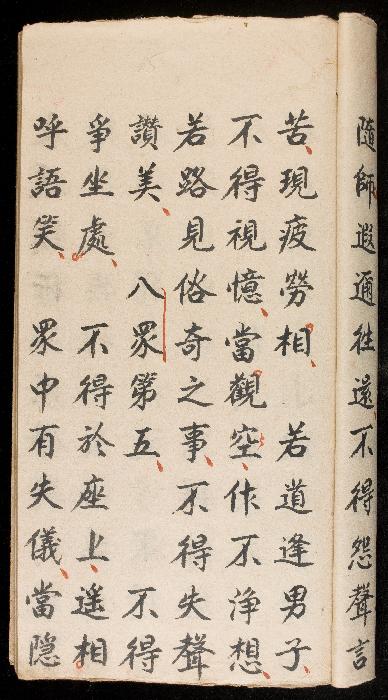 隨師遐邇往還不得怨聲言
苦現疲勞相 若道逢男子
不得視憶當觀空作不淨想
若路見俗奇之事不得失聲
讚美 八眾第五 不得
爭坐處 不得於座上遥相
呼語笑 眾中有失儀當隐